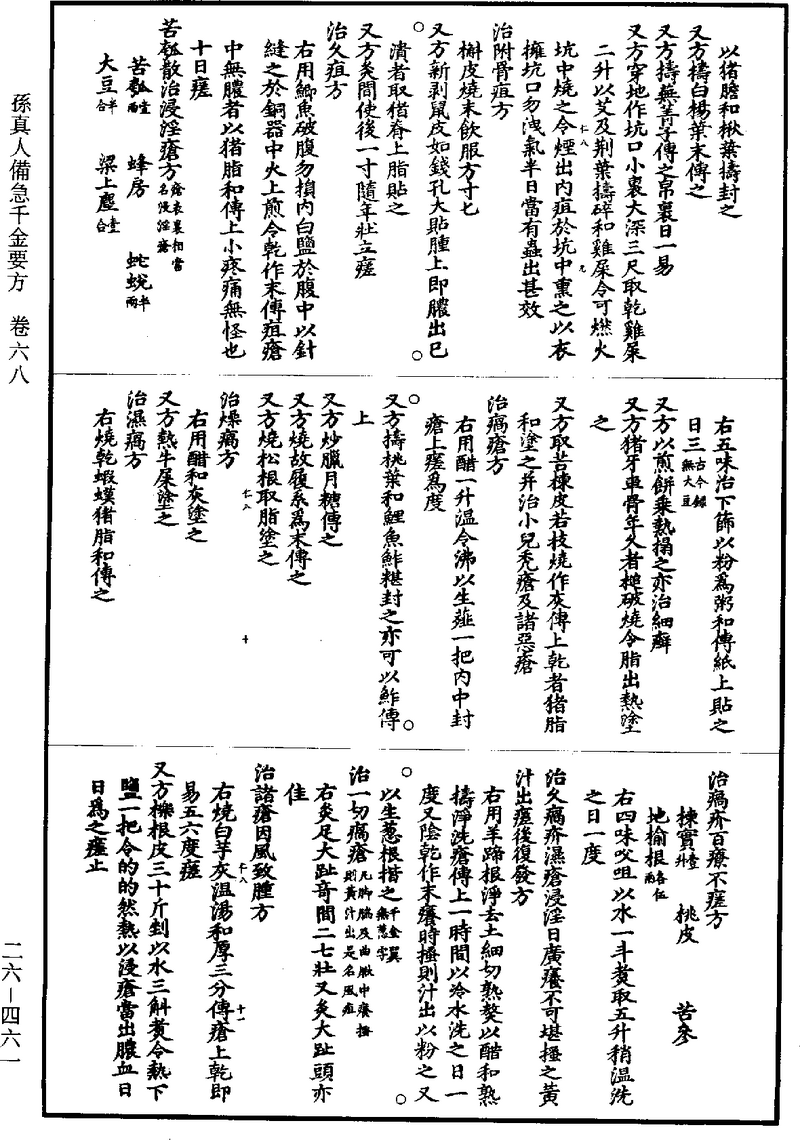 孫真人備急千金要方 卷六八
以猪膽和楸葉擣封之
又方擣白楊葉末傅之
又方擣蕪菁子傅之帛裹日一易
又方穿地作坑口小裏大深三尺取乾雞屎
二升以艾及荆葉擣碎和雞屎令可燃火
坑中燒之令煙出內疽於坑中熏之以衣
擁坑口勿洩氣半日當有蟲出甚效
治附骨疽方
槲皮燒末飲服方寸匕
又方新剥鼠皮如錢孔大貼腫上即膿出已
潰者取猪脊上脂貼之
又方灸間使後一寸隨年壯立瘥
治久疽方
右用鯽魚破腹勿損內白鹽於腹中以針
縫之於銅器中火上煎令乾作末傅疽瘡
中無膿者以猪脂和傅上小疼痛無怪也
十日瘥
苦瓠散治浸淫瘡方瘡表裏相當名浸淫瘡
苦瓠壹兩 蜂房 蛇蛻半兩
大豆半合 梁上塵壹合
右五味治下篩以粉為粥和傅紙上貼之
日三古今錄無大豆
又方以煎餅乘熱搨之亦治細癬
又方猪牙車骨年久者槌破燒令脂出熱塗
之
又方取苦楝皮若枝燒作灰傅上乾者猪脂
和塗之并治小兒禿瘡及諸惡瘡
治瘑瘡方
右用醋一升温令沸以生薤一把內中封
瘡上瘥為度
又方擣桃葉和鯉魚鮓糂封之亦可以鮓傅
上
又方炒臘月糖傅之
又方燒故履系為末傅之
又方燒松根取脂塗之
治燥瘑方
右用醋和灰塗之
又方熱牛屎塗之
治濕瘑方
右燒乾蝦蟆猪脂和傅之
治瘑疥百療不瘥方
楝實壹升 桃皮 苦參
地榆根各伍兩
右四味㕮咀以水一斗煑取五升稍温洗
之日一度
治久瘑疥濕瘡浸淫日廣癢不可堪搔之黄
汁出瘥後復發方
右用羊蹄根淨去土細切熟熬以醋和熟
擣淨洗瘡傅上一時間以冷水洗之日一
度又陰乾作末癢時搔則汁出以粉之又
以生葱根揩之千金翼無葱字
治一切瘑瘡凡脚腨及曲䐐中癢搔則黄汁出是名風疽
右灸足大趾奇間二七壯又灸大趾頭亦
佳
治諸瘡因風致腫方
右燒白芋灰温湯和厚三分傅瘡上乾即
易五六度瘥
又方櫟根皮三十斤剉以水三斛煑令熱下
鹽一把令的的然熱以浸瘡當出膿血日
日為之瘥止
二六—四六一